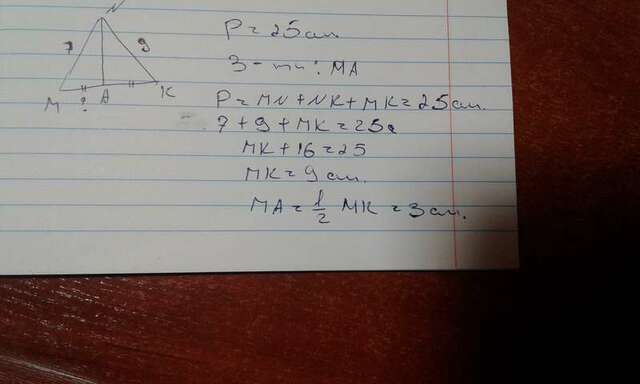 N
7 9
M ? A K
P=25см
З-ти: MA
P=MN+NK+MK=25см.
7+9+MK=25
MK+16=25
MK=9см.
MA=1/2 MK=3см.